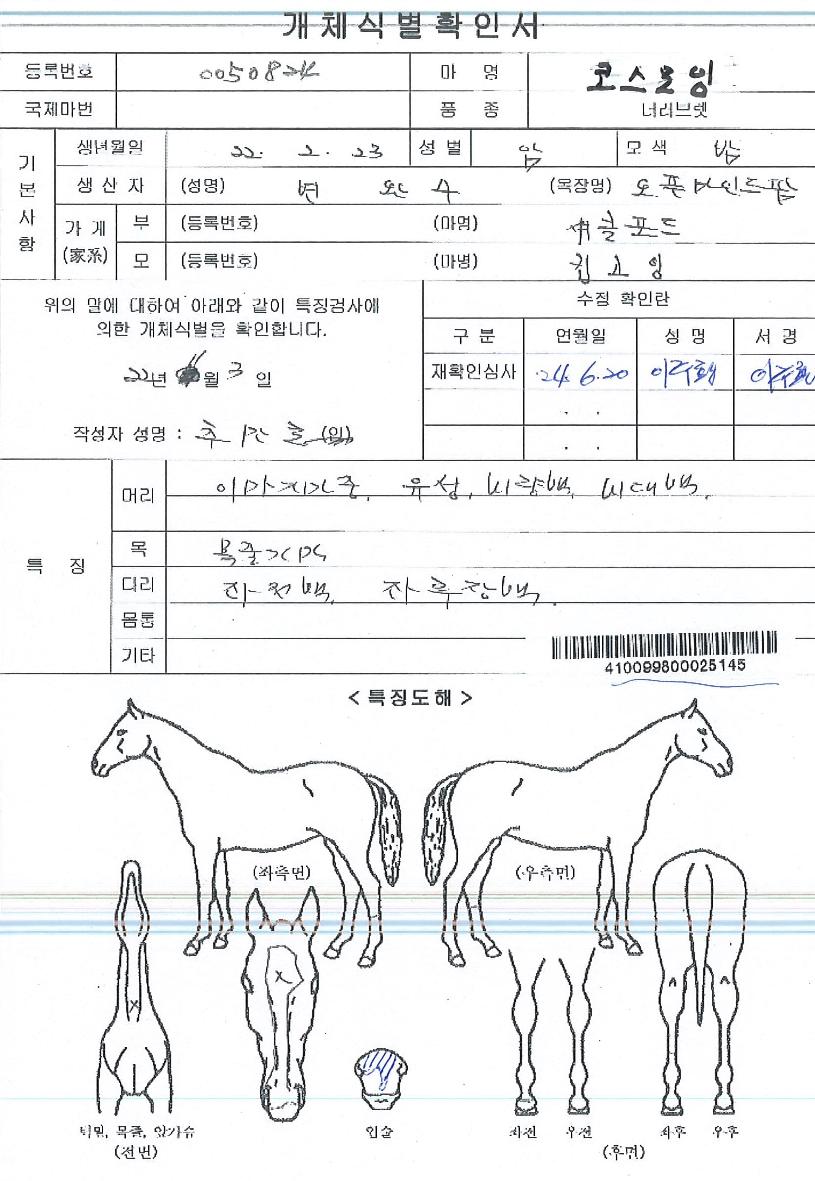 개체식별확인서
등록번호 0050824 마 명 코스모잉
국제마번 품 종 너리브렛
기본사항
생년월일 22. 2. 23 성 별 암 모 색 밤
생 산 자 (성명) 변 완 수 (목장명) 오픈마인드팜
가 계 (家系)
부 (등록번호) (마명)
모 (등록번호) (마명)
위의 말에 대하여 아래와 같이 특징검사에
의한 개체식별을 확인합니다.
22년 월 3 일
작성자 성명 : (인)
수정 확인란
구 분 연월일 성 명 서 명
재확인심사 24. 6. 20
. .
. .
특 징
머리 이마가마중, 유성, 비량백, 비대백.
목 목줄가마
다리
몸통
기타
410099800025145
< 특징도해 >
(좌측면) (우측면)
턱밑, 목줄, 앞가슴 입술 좌전 우전 좌후 우후
(전면) (후면)